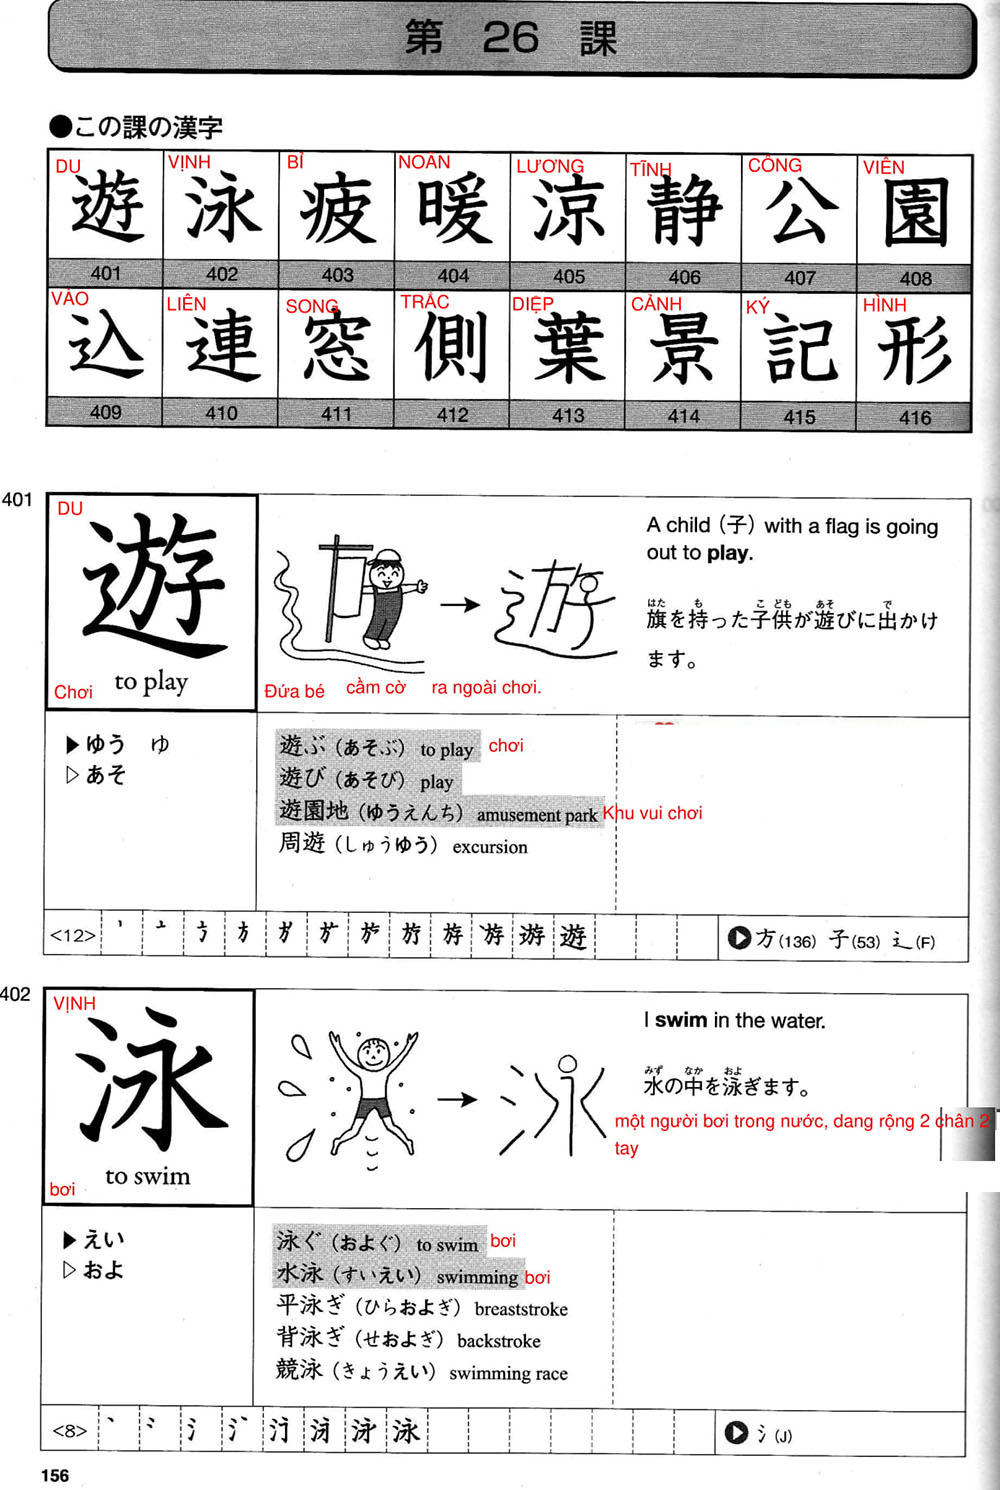 第 26 課
●この課の漢字
DU VỊNH BÌ NOÃN LƯƠNG TĨNH CÔNG VIÊN
遊 泳 疲 暖 涼 静 公 園
401 402 403 404 405 406 407 408
VÀO LIÊN SONG TRẮC DIỆP CẢNH KÝ HÌNH
込 連 窓 側 葉 景 記 形
409 410 411 412 413 414 415 416
401
DU
遊
to play
Chơi
Đứa bé cầm cờ ra ngoài chơi.
A child (子) with a flag is going
out to play.
はた も こ ども あそ で
旗を持った子供が遊びに出かけ
ます。
▶ゆう ゆ
▷あそ
遊ぶ（あそぶ） to play chơi
遊び（あそび） play
遊園地（ゆうえんち） amusement park Khu vui chơi
周遊（しゅうゆう） excursion
<12> 遊
方(136) 子(53) 辶(F)
402
VỊNH
泳
to swim
bơi
I swim in the water.
みず なか およ
水の中を泳ぎます。
một người bơi trong nước, dang rộng 2 chân 2
tay
▶えい
▷およ
泳ぐ（およぐ） to swim bơi
水泳（すいえい） swimming bơi
平泳ぎ（ひらおよぎ） breaststroke
背泳ぎ（せおよぎ） backstroke
競泳（きょうえい） swimming race
<8> 泳
氵(J)
156